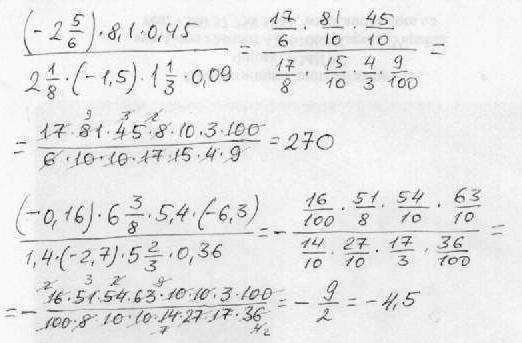 (-2 5/6) · 8,1 · 0,45 / 2 1/8 · (-1,5) · 1 1/3 · 0,09 = 17/6 · 81/10 · 45/10 / 17/8 · 15/10 · 4/3 · 9/100 =
= 17 · 81 · 45 · 8 · 10 · 3 · 100 / 6 · 10 · 10 · 17 · 15 · 4 · 9 = 270
(-0,16) · 6 3/8 · 5,4 · (-6,3) / 1,4 · (-2,7) · 5 2/3 · 0,36 = - 16/100 · 51/8 · 54/10 · 63/10 / 14/10 · 27/10 · 17/3 · 36/100 =
= - 16 · 51 · 54 · 63 · 10 · 10 · 3 · 100 / 100 · 8 · 10 · 10 · 14 · 27 · 17 · 36 = - 9/2 = -4,5